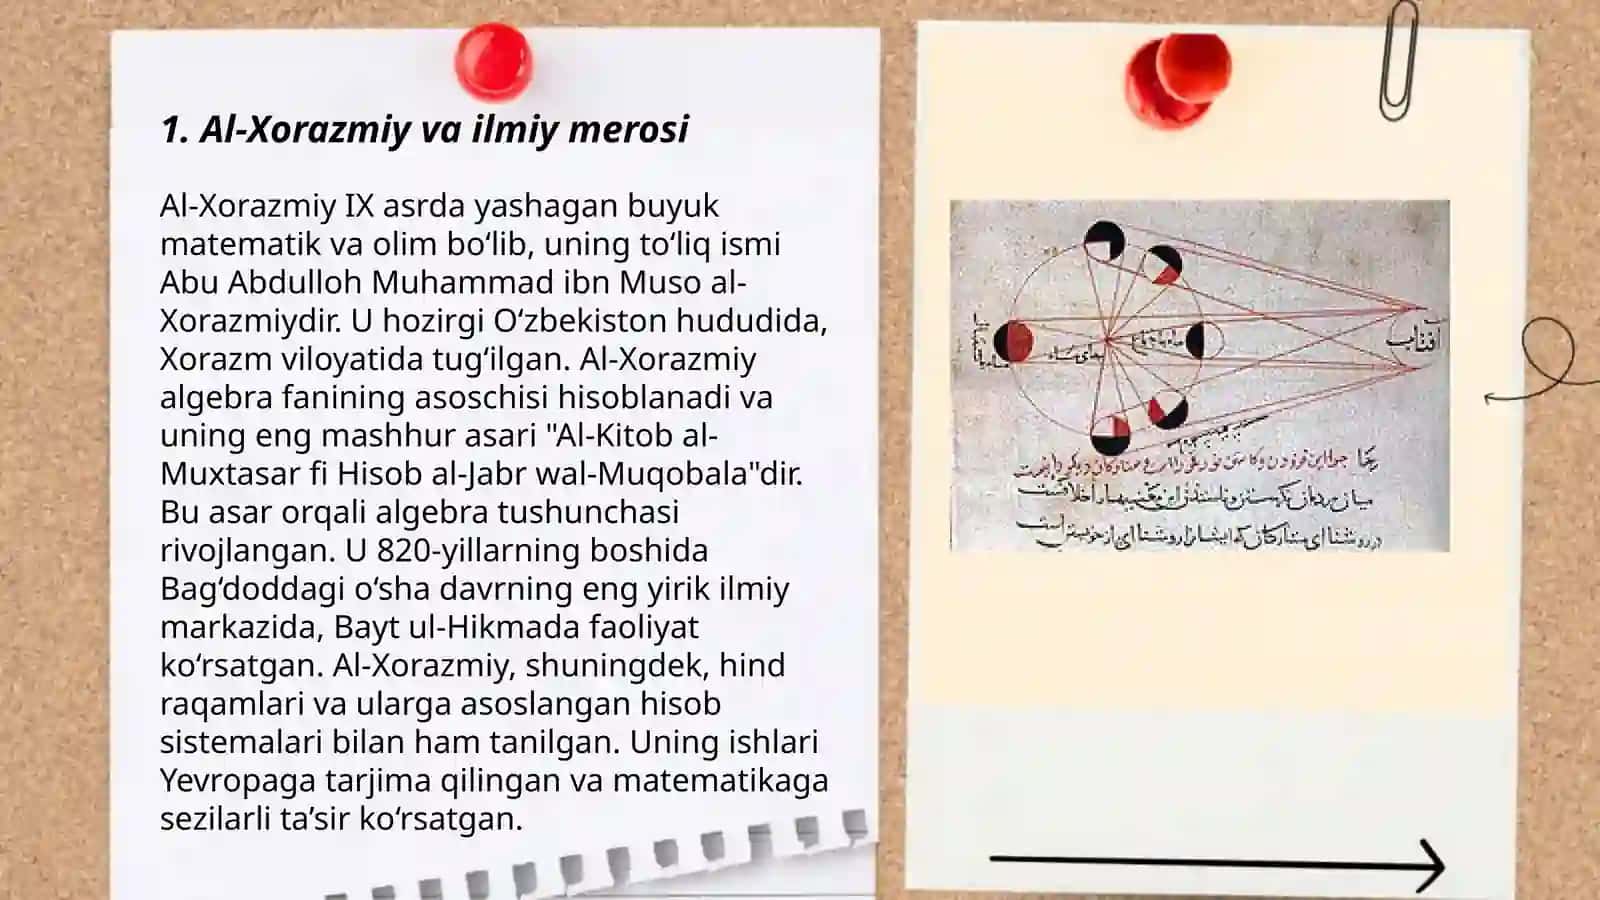 1. Al-Xorazmiy va ilmiy merosi
Al-Xorazmiy IX asrda yashagan buyuk
matematik va olim bo‘lib, uning to‘liq ismi
Abu Abdulloh Muhammad ibn Muso al-
Xorazmiydir. U hozirgi O‘zbekiston hududida,
Xorazm viloyatida tug‘ilgan. Al-Xorazmiy
algebra fanining asoschisi hisoblanadi va
uning eng mashhur asari "Al-Kitob al-
Muxtasar fi Hisob al-Jabr wal-Muqobala"dir.
Bu asar orqali algebra tushunchasi
rivojlangan. U 820-yillarning boshida
Bag‘doddagi o‘sha davrning eng yirik ilmiy
markazida, Bayt ul-Hikmada faoliyat
ko‘rsatgan. Al-Xorazmiy, shuningdek, hind
raqamlari va ularga asoslangan hisob
sistemalari bilan ham tanilgan. Uning ishlari
Yevropaga tarjima qilingan va matematikaga
sezilarli ta’sir ko‘rsatgan.
آفتاب